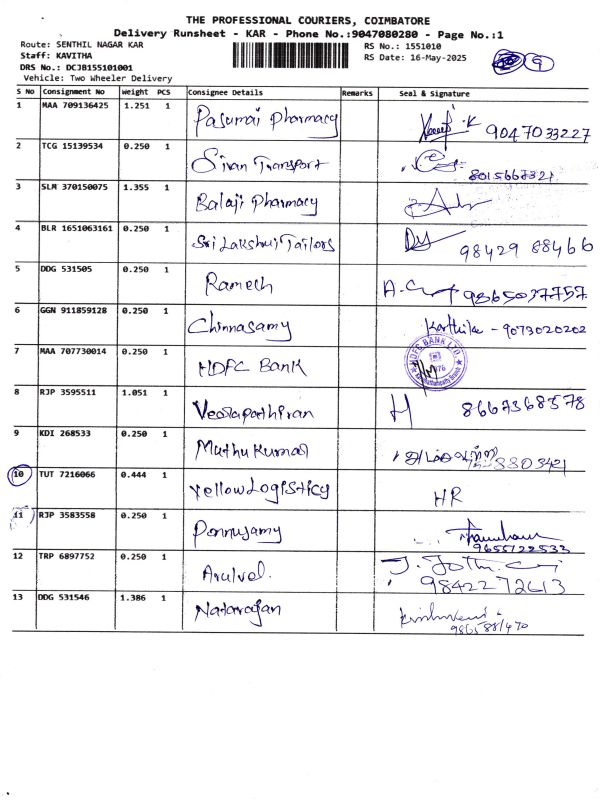 THE PROFESSIONAL COURIERS, COIMBATORE
Delivery Runsheet - KAR - Phone No.:9047080280 - Page No.:1
Route: SENTHIL NAGAR KAR
RS No.: 1551010
Staff: KAVITHA
RS Date: 16-May-2025
9
DRS No.: DCJB155101001
Vehicle: Two Wheeler Delivery
S No Consignment No Weight PCS Consignee Details Remarks Seal & Signature
1 MAA 709136425 1.251 1 Pasumai Pharmacy K 9047033227
2 TCG 15139534 0.250 1 Sivan Transport 8015667321
3 SLM 370150075 1.355 1 Balaji Pharmacy
4 BLR 1651063161 0.250 1 Sri Lakshmi Tailors 98429 88466
5 DDG 531505 0.250 1 Ramesh 9865037757
6 GGN 911859128 0.250 1 Chinnasamy Karthika - 9073020202
7 MAA 707730014 0.250 1 HDFC Bank HDFC BANK LTD.
8 RJP 3595511 1.051 1 Veerapathiran H 8667368578
9 KDI 268533 0.250 1 Muthu Kumar
10 TUT 7216066 0.444 1 Yellow Logisticy HR
11 RJP 3583558 0.250 1 Ponnusamy 9655122533
12 TRP 6897752 0.250 1 Arulvel. 9842272613
13 DDG 531546 1.386 1 Natarajan